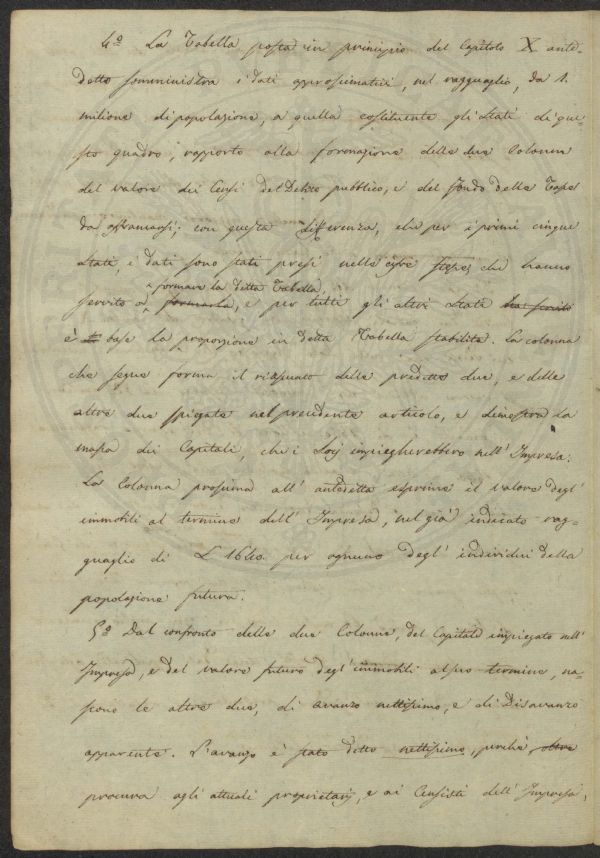 4.º La Tabella posta in principio del Capitolo X ante-
detto somministra i dati approssimativi, nel ragguaglio, da 1.
milione di popolazione, a quella costituente gli Stati di que-
sto quadro, rapporto alla formazione delle due Colonne
del valore dei Censi del Debito pubblico, e del fondo delle Tasse
da affrancarsi; con questa differenza, che per i primi cinque
Stati, i dati sono stati presi nelle cifre stesse che hanno
formare la detta Tabella,
servito a formarla, e per tutti gli altri Stati ha servito
è base la proporzione in detta Tabella stabilita. La colonna
che segue forma il riassunto delle predette due, e delle
altre due spiegate nel precedente articolo, e dimostra la
massa dei Capitali, che i Socj impiegherebbero nell' Impresa.
La Colonna prossima all' antedetta esprime il valore degl'
immobili al termine dell' Impresa, nel già indicato rag-
guaglio di L 1640. per ognuno degl' individui della
popolazione futura.
5.º Dal confronto delle due Colonne, del Capitale impiegato nell'
Impresa, e del valore futuro degl' immobili al suo termine, na-
scono le altre due, di avanzo nettissimo, e di Disavanzo
apparente. L'avanzo è stato detto nettissimo, perchè, oltre
procura agli attuali proprietarj, e ai Censisti dell' Impresa,